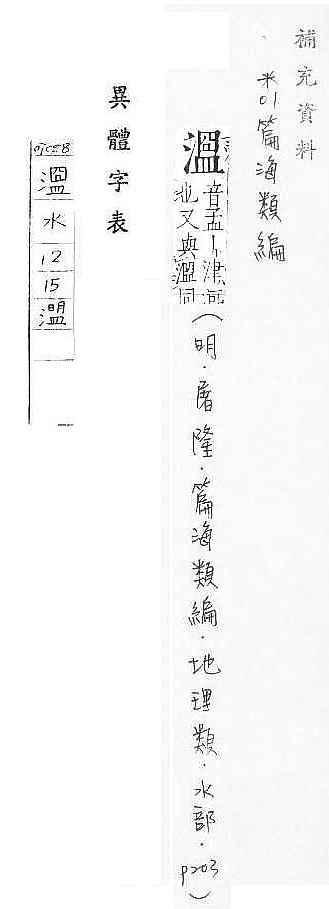 補充資料
※01篇海類編
音孟｜津河
北又與溫同
(明．屠隆．篇海類編．地理類．水部．P203)
異體字表
水
12
15